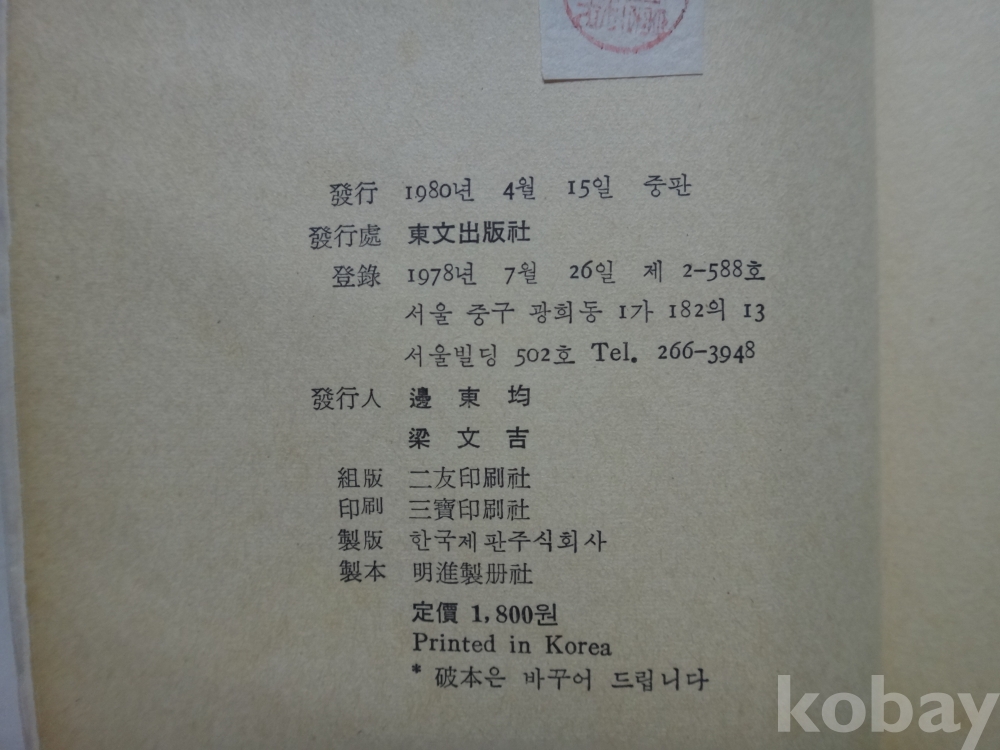 發行 1980년 4월 15일 중판
發行處 東文出版社
登錄 1978년 7월 26일 제 2-588호
서울 중구 광희동 1가 182의 13
서울빌딩 502호 Tel. 266-3948
發行人 邊東均
梁文吉
組版 二友印刷社
印刷 三寶印刷社
製版 한국제판주식회사
製本 明進製册社
定價 1,800원
Printed in Korea
* 破本은 바꾸어 드립니다
kobay